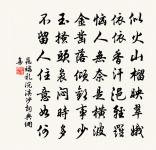 似火山榴映翠娥
依依香汗浥輕羅
惱人無奈是橫波
傾歡事少
玉搔頭裊悶時多
不留人住意如何
浣溪沙詞